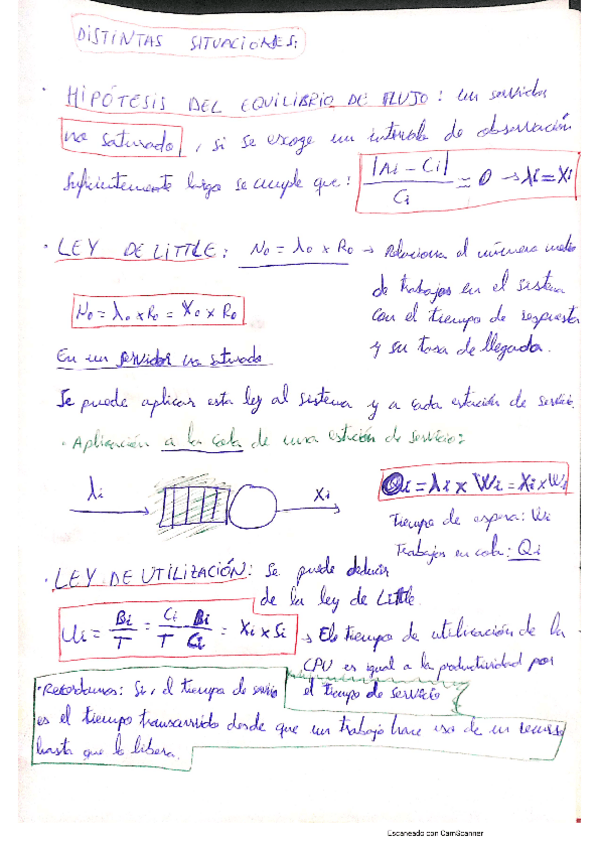 DISTINTAS SITUACIONES:
· HIPÓTESIS DEL EQUILIBRIO DE FLUJO: un servidor
no saturado, si se escoge un intervalo de observación
suficientemente largo se cumple que: |Ai - Ci| / Ci = 0 → λi = Xi
· LEY DE LITTLE: No = λo x Ro → Relaciona el número medio
de trabajos en el sistema
No = λo x Ro = Xo x Ro
con el tiempo de respuesta
y su tasa de llegada.
En un servidor no saturado
Se puede aplicar esta ley al sistema y a cada estación de servicio.
· Aplicación a la cola de una estación de servicio:
λi Xi Qi = λi x Wi = Xi x Wi
Tiempo de espera: Wi
Trabajos en cola: Qi
· LEY DE UTILIZACIÓN: Se puede deducir
de la ley de Little.
Ui = Bi / T = Ci / T Bi / Ci = Xi x Si → El tiempo de utilización de la
CPU es igual a la productividad por
el tiempo de servicio
· Recordamos: Si, el tiempo de servicio
es el tiempo transcurrido desde que un trabajo hace uso de un recurso
hasta que lo libera.
Escaneado con CamScanner